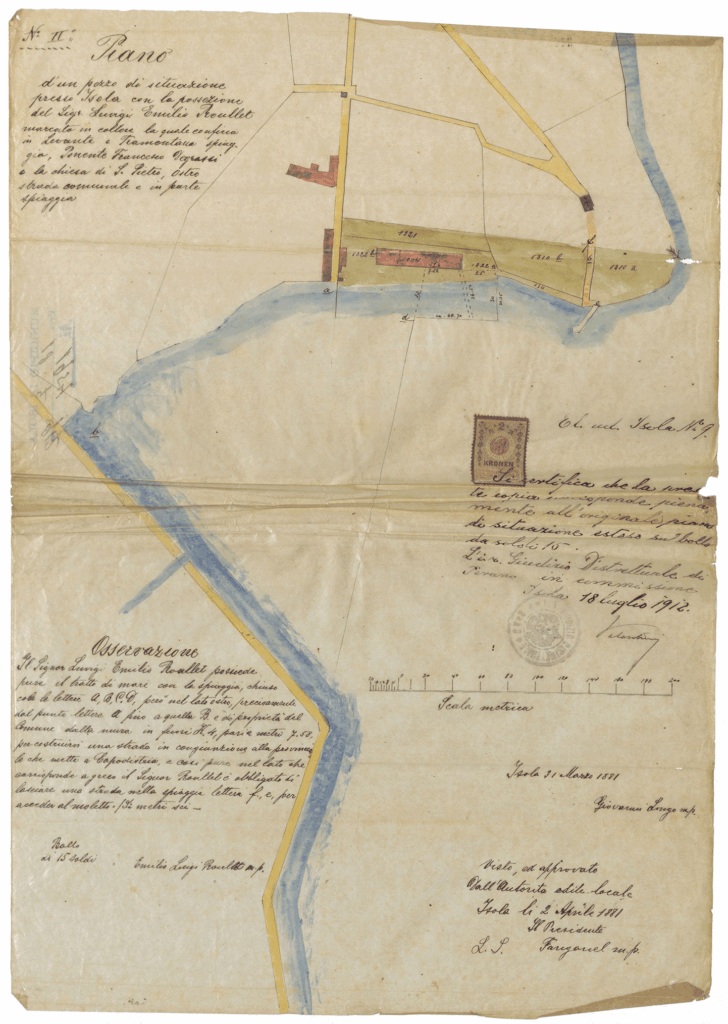 Nº II.º
Piano
d'un pezzo di situazione
presso Isola con la possezione
del Sigr Luigi Emilio Roullet
marcato in collore la quale confina
in Levante e Tramontana spiag-
gia, Ponente Francesco Degrassi
e la chiesa di S. Pietro, Ostro
strada comunale e in parte
spiaggia
1821
1822 b
1822 a
25
1820 b
1820 a
a
d
b
f
e
Et. ud. Isola Nº 9.
2
KRONEN
Si certifica che la pres-
te copia corrisponde piena-
mente all'originale piano
di situazione esteso sul bollo
da soldi 15.
L'i.r. Giudizio Distrettuale di
Pirano in commissione
Isola 18 luglio 1912.
Osservazione
Il Signor Luigi Emilio Roullet possiede
pure el tratto di mare con la spiaggia, chiuso
colle lettere A, B, C, D, però nel lato ostro, precisamente
dal punto lettera A fino a quella B e di proprietà del
Comune dalla mura in fuori K. 4, pari a metri 7.58,
per costruirsi una strada in congiunzione alla provincia-
le che mette a Capodistria, e così pure nel lato che
corrisponde a greco il Signor Roullet è obbligato di
lasciare una strada nella spiaggia lettera f, e, per
acceder al moletto. metri sei —
Bollo
di 15 soldi
Emilio Luigi Roullet m.p.
Scala metrica
Isola 31 Marzo 1881
Giovanni Longo m.p.
Visto, ed approvato
Dall'Autorita edile locale
Isola li 2 Aprile 1881
Il Presidente
L. S.
m.p.